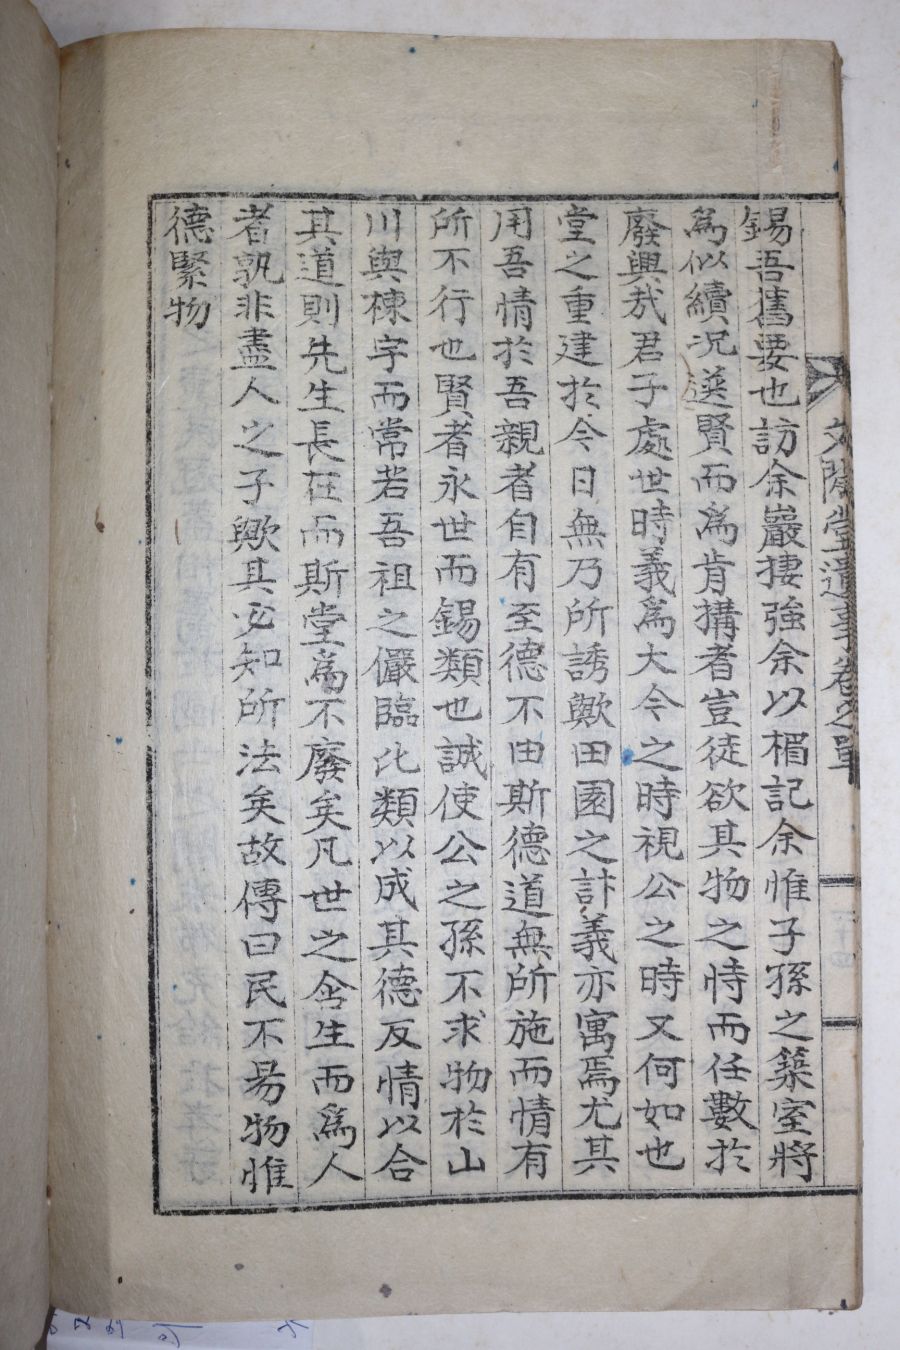 錫吾舊要也訪余巖捿強余以楣記余惟子孫之築室將
為似續況送賢而為肯搆者豈徒欲其物之恃而任數於
廢興㢤君子處世時義為大今之時視公之時又何如也
堂之重建於今日無乃所誘歟田園之計義亦寓焉尤其
用吾情於吾親者自有至德不由斯德道無所施而情有
所不行也賢者永世而錫類也誠使公之孫不求物於山
川與棟宇而常若吾祖之儼臨比類以成其德反情以合
其道則先生長在而斯堂為不廢矣凡世之含生而為人
者孰非盡人之子歟其必知所法矣故傳曰民不易物惟
德繄物
堂遺事卷之單
二十四